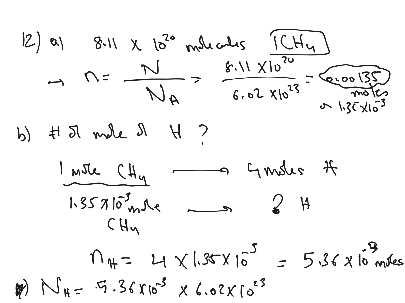 12) a) 8.11 × 10²⁰ molecules CH₄
→ n = N / N_A = 8.11 × 10²⁰ / 6.02 × 10²³ = 0.00135 moles
or 1.35 × 10⁻³
b) # of mole of H ?
1 mole CH₄ → 4 moles H
1.35 × 10⁻³ mole CH₄ → ? H
n_H = 4 × 1.35 × 10⁻³ = 5.36 × 10⁻³ moles
N_H = 5.36 × 10⁻³ × 6.02 × 10²³